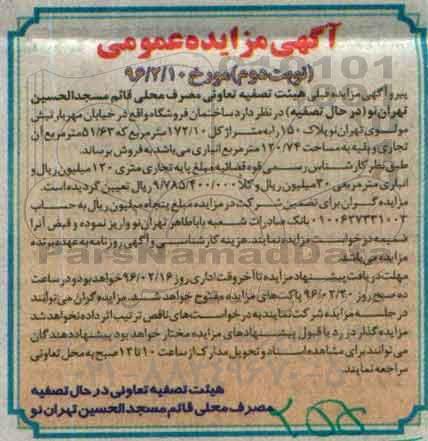 آگهی مزایده عمومی
(نوبت دوم) مورخ ۹۶/۲/۱۰
پیرو آگهی مزایده قبلی هیئت تصفیه تعاونی مصرف محلی قائم مسجدالحسین
تهران نو (در حال تصفیه) در نظر دارد ساختمان فروشگاه واقع در خیابان مهربار نبش
مولوی تهران نو پلاک ۱۵۰ را به متراژ کل ۱۷۲/۱۰ مترمربع که ۵۱/۶۳ مترمربع آن
تجاری و بقیه به مساحت ۱۲۰/۷۴ مترمربع انباری می باشد به فروش برساند.
طبق نظر کارشناس رسمی قوه قضائیه مبلغ پایه تجاری متری ۱۲۰ میلیون ریال و
انباری مترمربعی ۳۰ میلیون ریال و کلاً ۹/۷۸۵/۴۰۰/۰۰۰ ریال تعیین گردیده است.
مزایده گران برای تضمین شرکت در مزایده مبلغ پنجاه میلیون ریال به حساب
۰۱۰۰۶۲۷۳۳۱۰۰۳ بانک صادرات شعبه باباطاهر تهران نو واریز نموده و قبض آنرا
ضمیمه درخواست مزایده نمایند. هزینه کارشناسی و آگهی روزنامه به عهده برنده
مزایده می باشد.
مهلت دریافت پیشنهاد مزایده تا آخر وقت اداری روز ۹۶/۰۲/۱۶ خواهد بود و در ساعت
ده صبح روز ۹۶/۰۲/۲۰ پاکت های مزایده مفتوح خواهد شد. مزایده گران می توانند
در جلسه مزایده شرکت نمایند به درخواست های ناقص ترتیب اثر داده نخواهد شد
مزایده گذار در رد یا قبول پیشنهادهای مزایده مختار خواهد بود پیشنهاددهندگان
می توانند برای مشاهده اسناد و تحویل مدارک از ساعت ۱۰ تا ۱۲ صبح به محل تعاونی
مراجعه نمایند.
هیئت تصفیه تعاونی در حال تصفیه
مصرف محلی قائم مسجدالحسین تهران نو